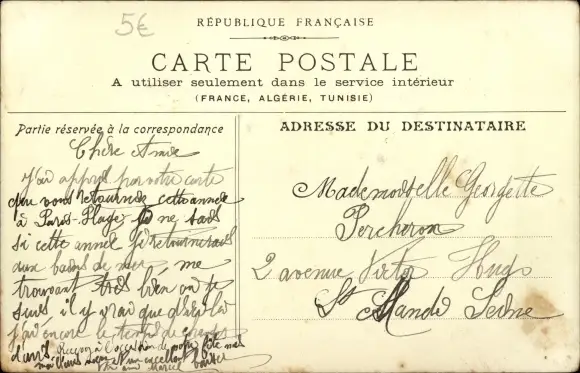 5€
RÉPUBLIQUE FRANÇAISE
CARTE POSTALE
A utiliser seulement dans le service intérieur
(FRANCE, ALGÉRIE, TUNISIE)
Partie réservée à la correspondance
Chère Amie
J'ai appris par votre carte
que vous retournez cette année
à Paris-Plage je ne sais
si cette année je retournerais
aux bains de mer, me
trouvant très bien on je
suis il y vrai que d'ici là
j'ai encore le temps de changer
d'avis. Reçevez à l'occasion de votre fête mes
meilleurs
ami Marcel
ADRESSE DU DESTINATAIRE
Mademoiselle Georgette
Percheron
2 avenue Victor Hugo
St Mandé Seine